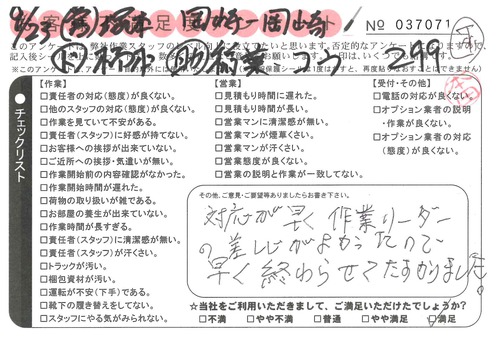 9/23 (営)塚本 岡崎→岡崎 № 037071
299
チェックリスト
【作業】
□責任者の対応(態度)が良くない。
□他のスタッフの対応(態度)が良くない。
□作業を見ていて不安がある。
□責任者(スタッフ)に好感が持てない。
□お客様への挨拶が出来ていない。
□ご近所への挨拶・気遣いが無い。
□作業開始前の内容確認がなかった。
□作業開始時間が遅れた。
□荷物の取り扱いが雑である。
□お部屋の養生が出来ていない。
□作業時間が長すぎる。
□責任者(スタッフ)に清潔感が無い。
□責任者(スタッフ)が汗くさい。
□トラックが汚い。
□梱包資材が汚い。
□運転が不安(下手)である。
□靴下の履き替えをしてない。
□スタッフにやる気がみられない。
【営業】
□見積もり時間に遅れた。
□見積もり時間が長い。
□営業マンに清潔感が無い。
□営業マンが煙草くさい。
□営業マンが汗くさい。
□営業態度が良くない。
□営業の説明と作業が一致してない。
【受付・その他】
□電話の対応が良くない。
□オプション業者の説明
・作業が良くない。
□オプション業者の対応
(態度)が良くない。
その他、ご意見・ご要望等ありましたらお書き下さい。
対応が早く作業リーダー
の差し心がよかったので
早く終わらせてたすかりました。
☆当社をご利用いただきまして、ご満足いただけたでしょうか?
□不満 □やや不満 □普通 □やや満足 □満足